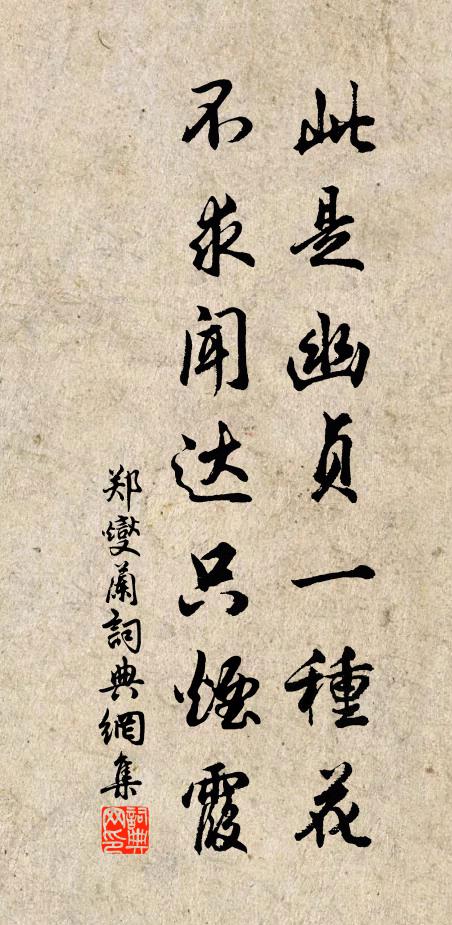 此是幽贞一種花
不求闻达只煙霞
郑燮蘭詞典網集
詞典网印